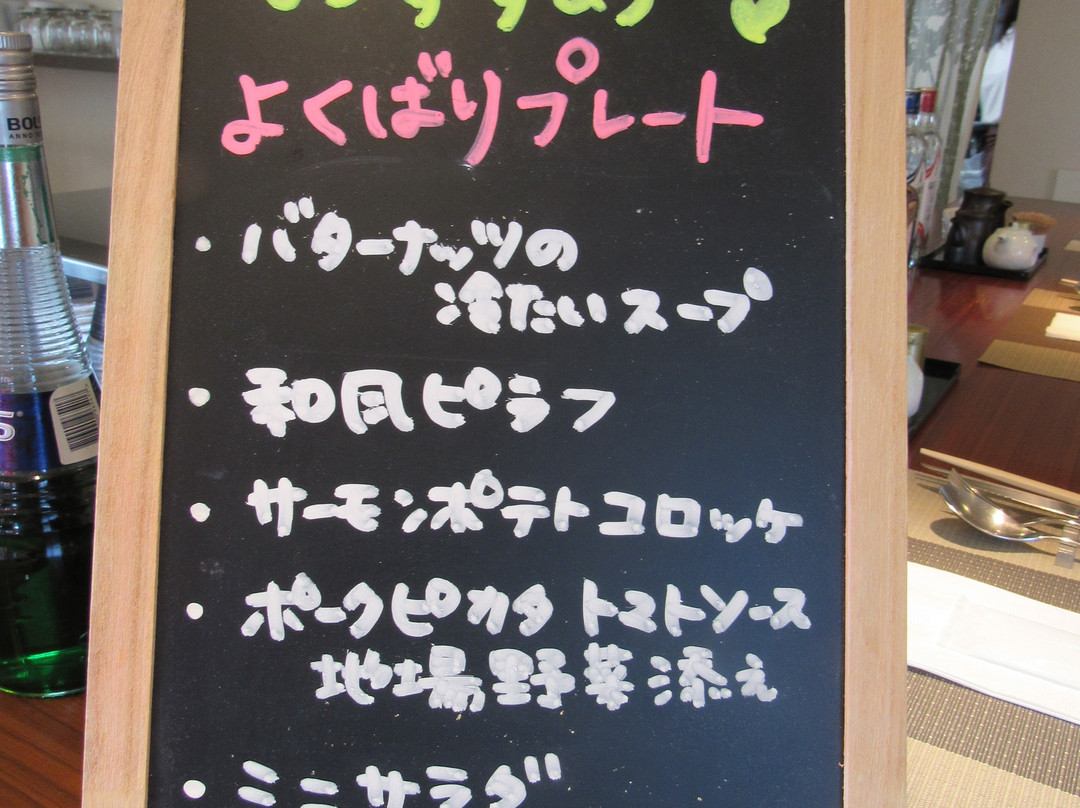 よくばりプレート
・バターナッツの
冷たいスープ
・和風ピラフ
・サーモンポテトコロッケ
・ポークピカタ トマトソース
地場野菜添え
・ミニサラダ
BOL
ANNO